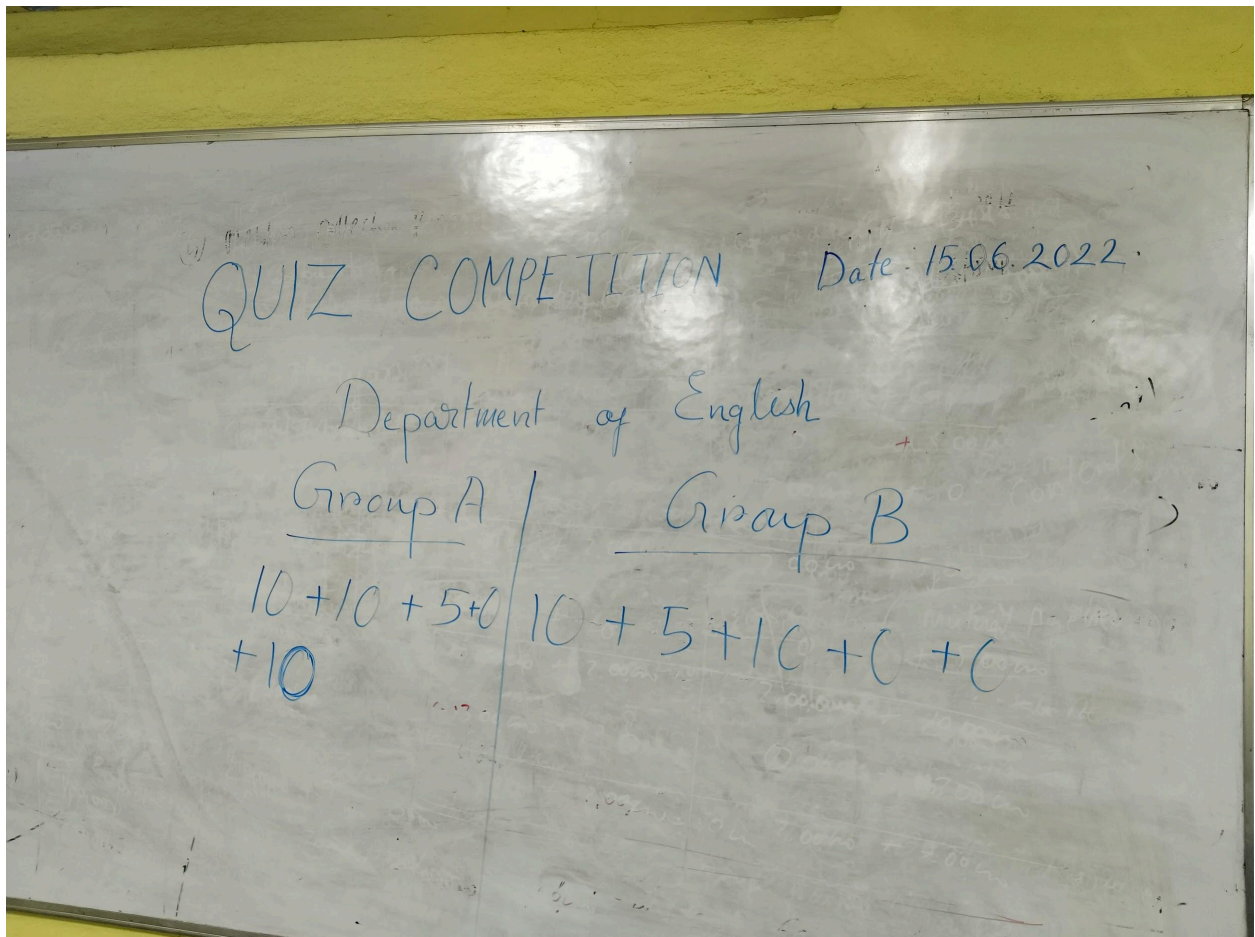 QUIZ COMPETITION Date. 15.06.2022.
Department of English
Group A
10+10+5+0
+10
Group B
10+5+10+0+0